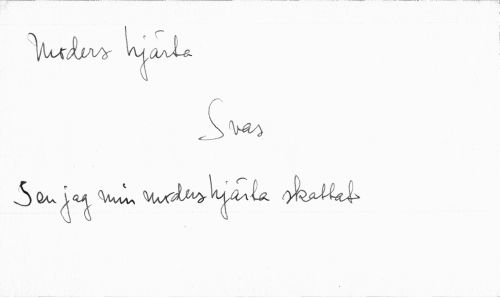 Moders hjärta
Svas
Sen jag min moders hjärta skattat